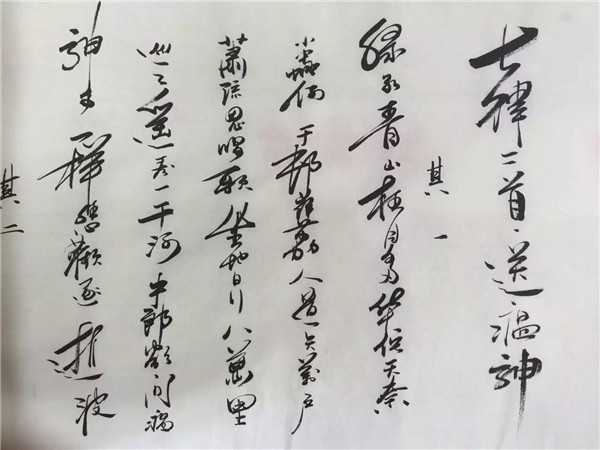 七律二首·送瘟神
其一
绿水青山枉自多华佗无奈
小蟲何千邨薜荔人遗矢萬户
蕭疏鬼唱歌坐地日行八萬里
巡天遥看一千河牛郎欲问瘟
神事一樣悲歡逐逝波
其二